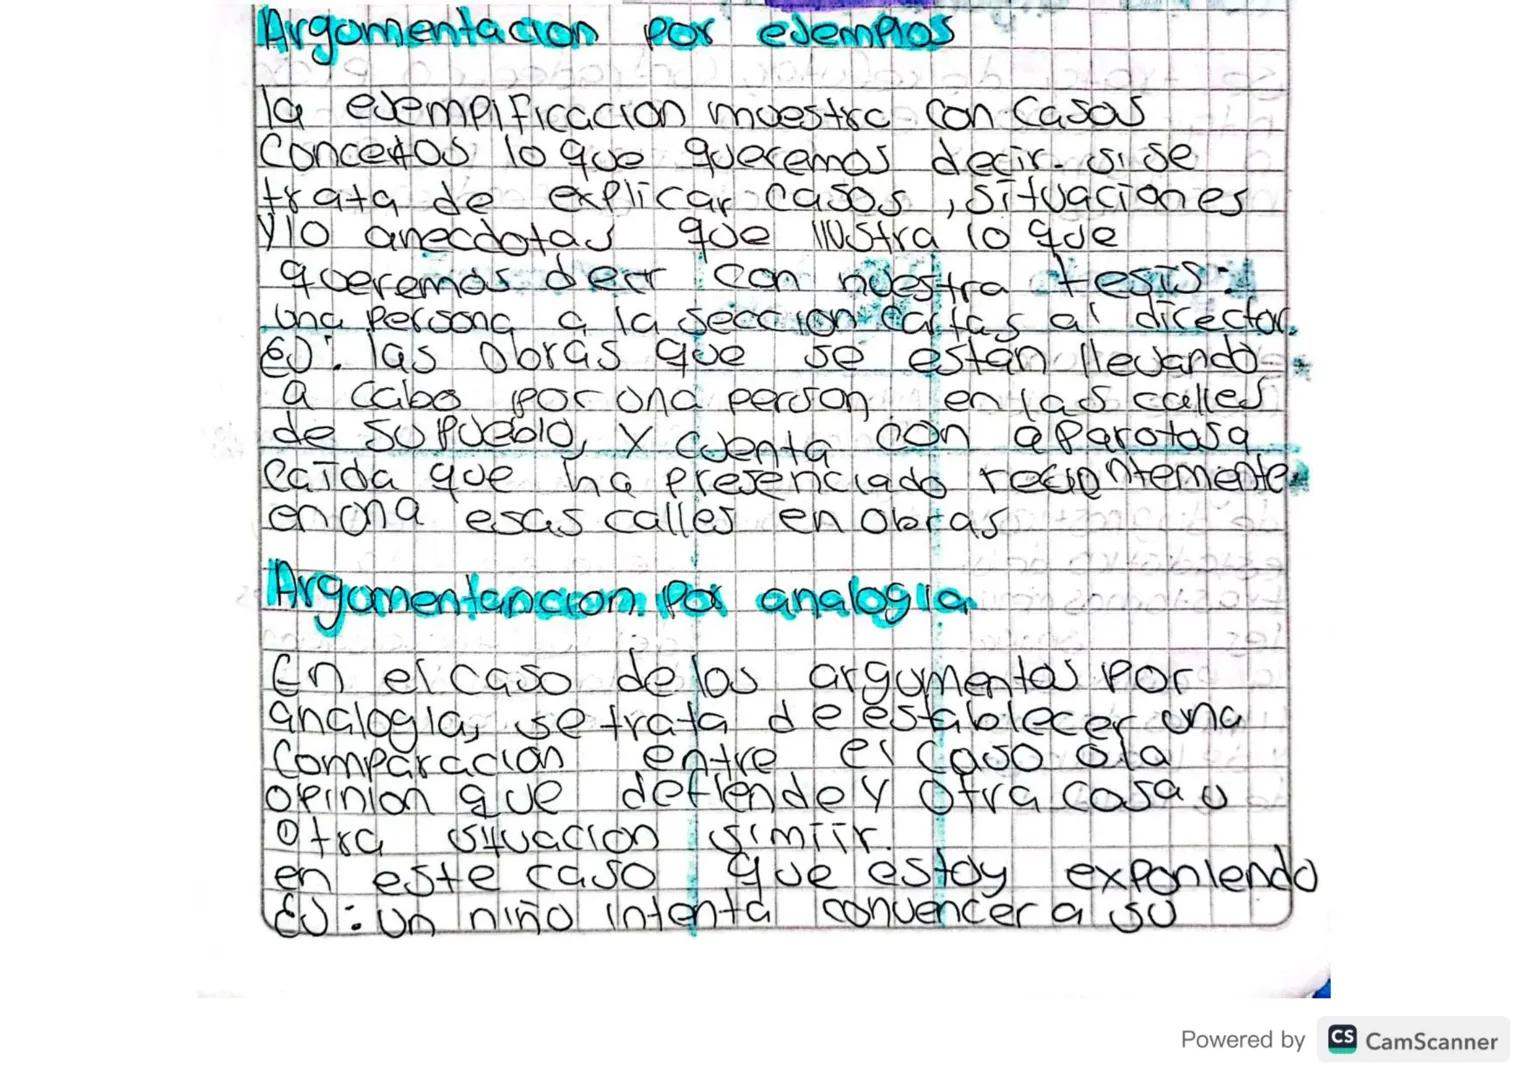 Argumentacion por ejemplos
la ejempificacion muestra con casos
Concetos lo que queremos decir. si se
trata de explicar casos, situaciones
y/o anecdotas que ilustra lo que
queremos decir con nuestra tesis:
una persona a la seccion cartas al director.
EJ: las obras que se están llevando
a cabo por una person en las calles
de su pueblo, y cuenta con aparotasa
caída que ha presenciado recientemente
en una esas calles en obras
Argumentancion por analogia
En el caso de los argumentos por
analogia, se trata de establecer una
comparacion entre el caso o la
opinion que defiende y otra cosa u
otra situacion simiir.
en este caso que estoy exponiendo
EJ: un niño intenta convencer a su
Powered by CS CamScanner